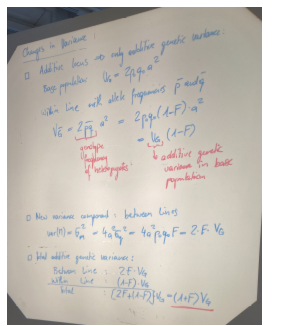 Changes in Variance :
□ Additive locus ⇒ only additive genetic variance.
Base population V_G = 2p₀q₀a²
within Line with allele frequencies p̄ and q̄
V_G̅ = 2p̄q̄ a² = 2p₀q₀(1-F)·a²
= V_G (1-F)
genotype
frequency
of heterozygotes
↳ additive genetic
variance in base
population
□ New variance component : between lines
var(M) = σ²_m = 4a²σ²_q = 4a²p₀q₀F = 2·F·V_G
□ total additive genetic variance :
Between Line : 2F·V_G
within Line : (1-F)·V_G
total : [2F+(1-F)]V_G = (1+F)V_G